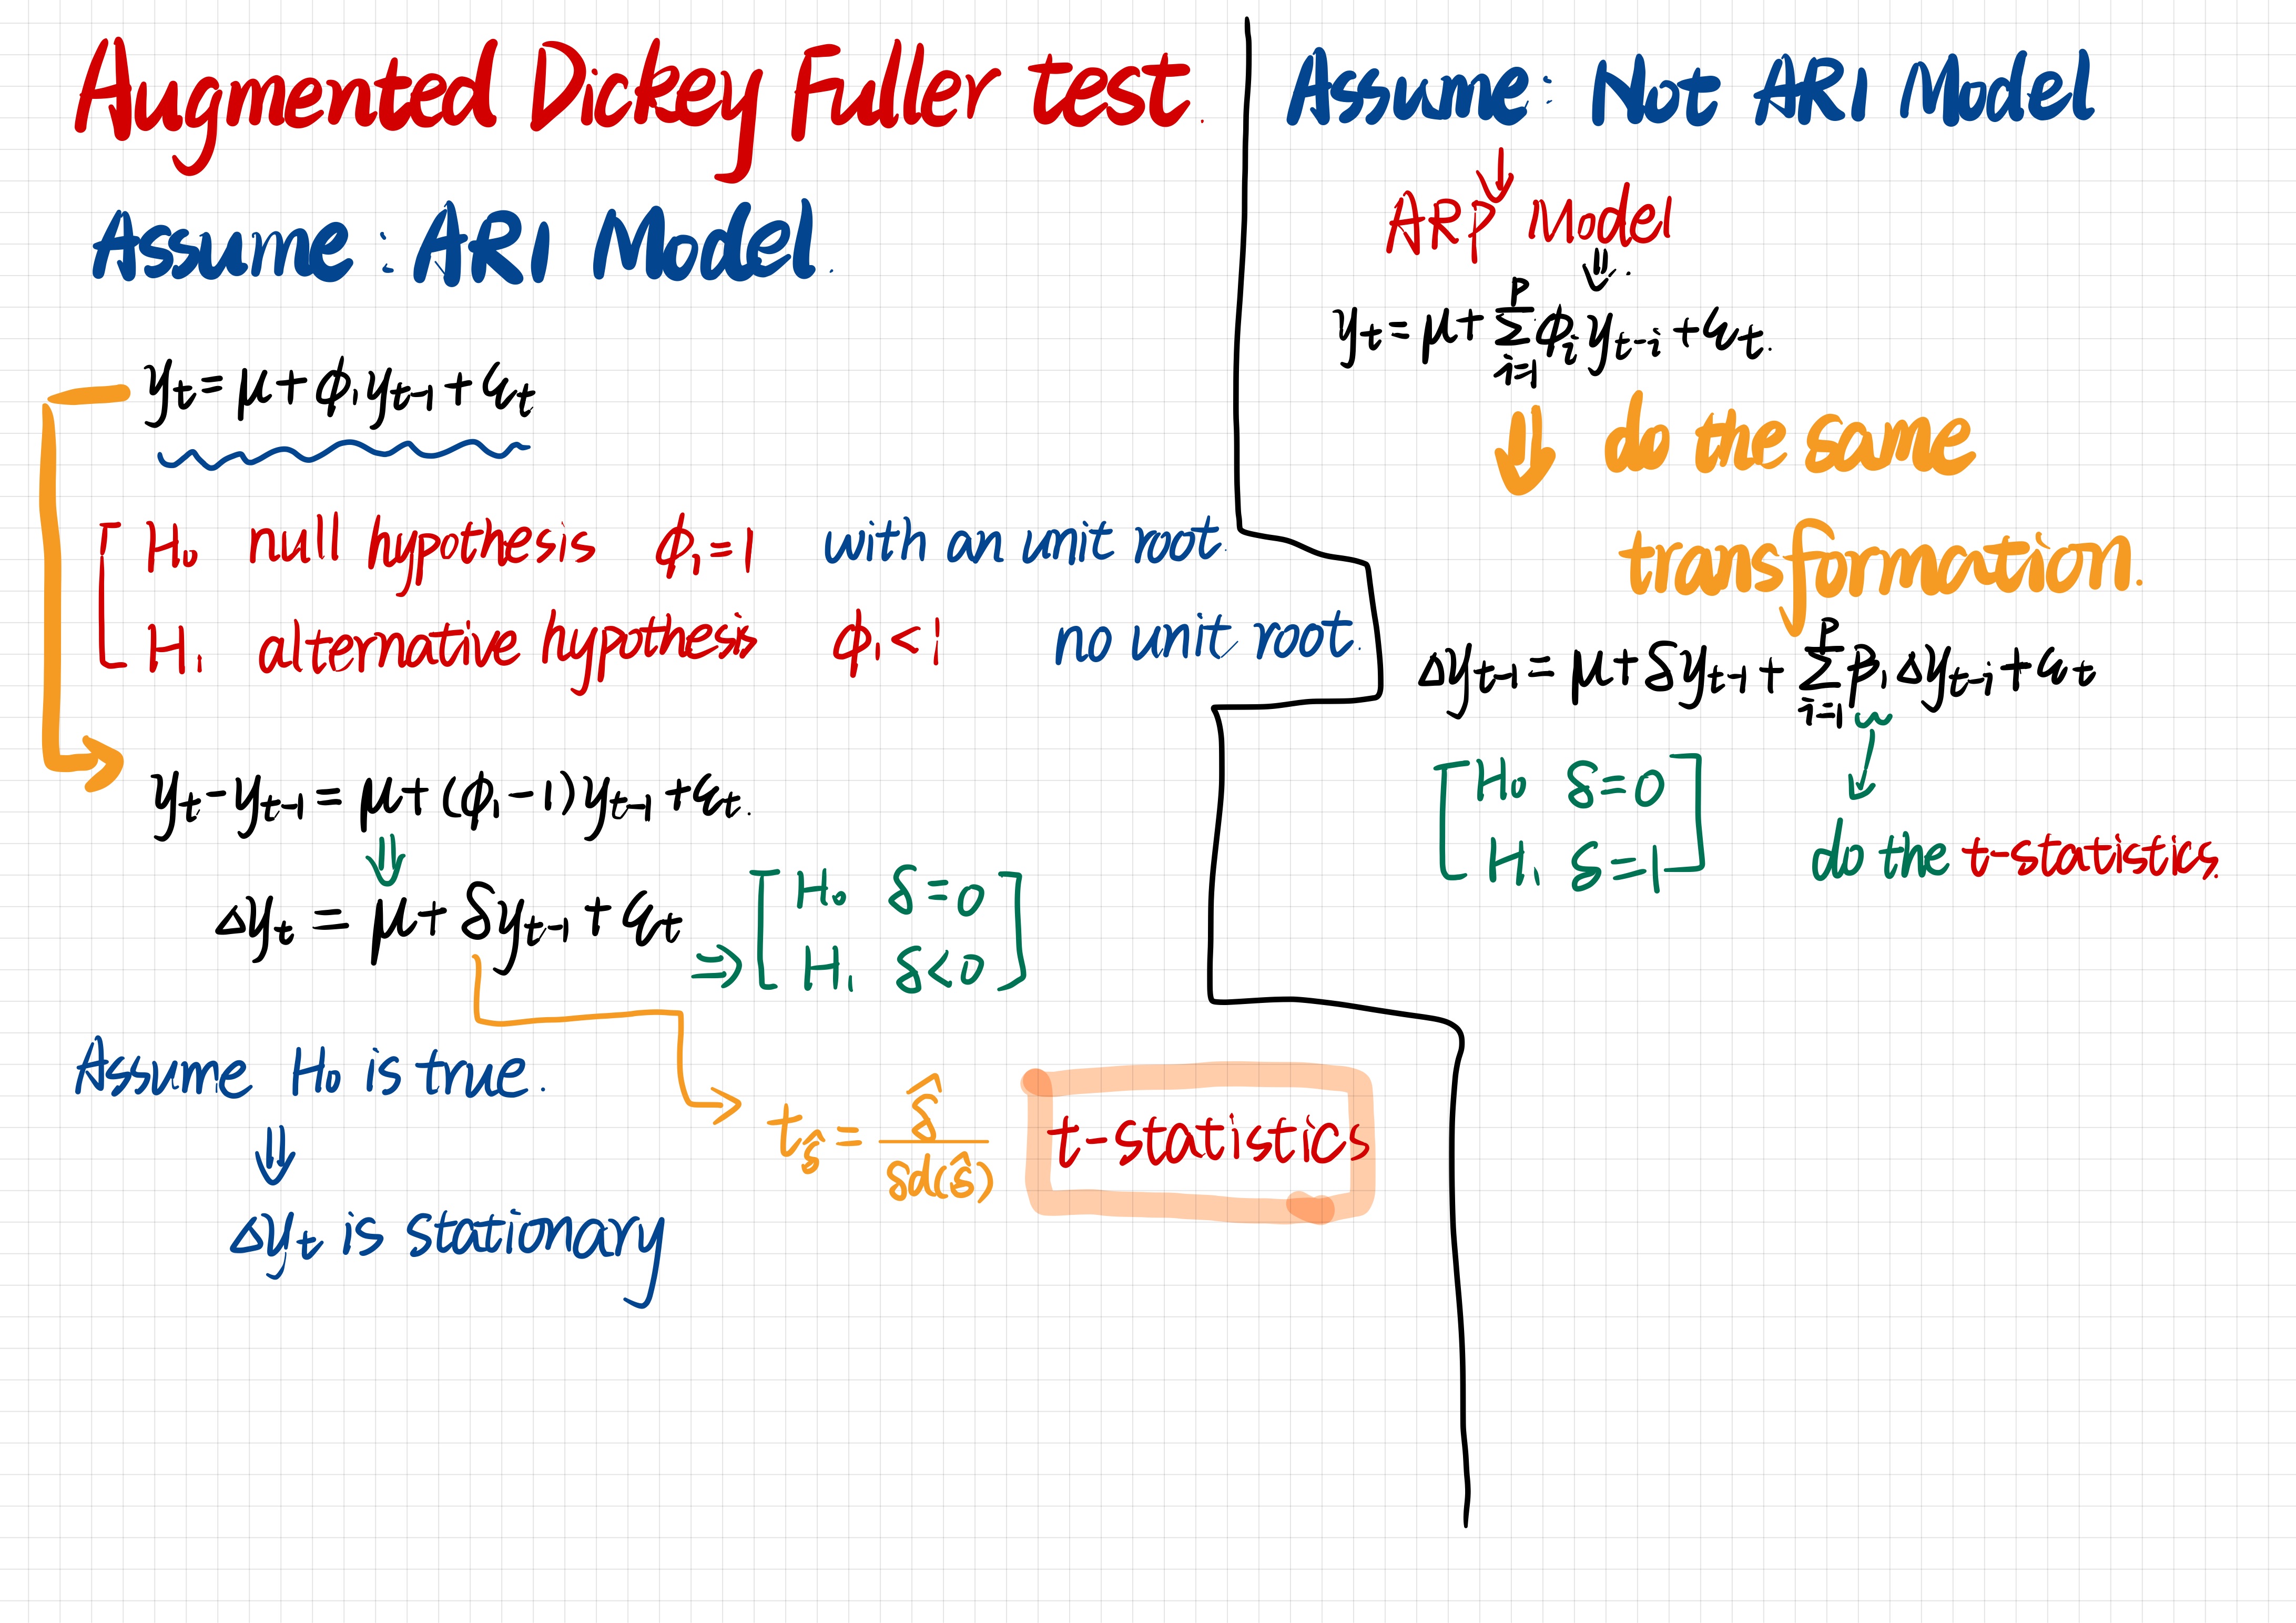 Augmented Dickey Fuller test.
Assume: AR1 Model.
yₜ = μ + ϕ₁yₜ₋₁ + εₜ
H₀ null hypothesis ϕ₁ = 1 with an unit root.
H₁ alternative hypothesis ϕ₁ < 1 no unit root.
yₜ - yₜ₋₁ = μ + (ϕ₁ - 1)yₜ₋₁ + εₜ.
⇓
Δyₜ = μ + δyₜ₋₁ + εₜ
⇒ [ H₀ δ = 0
H₁ δ < 0 ]
Assume H₀ is true.
⇓
Δyₜ is stationary
t_δ̂ = δ̂ / sd(δ̂) t-statistics
Assume: Not AR1 Model
↓
ARP Model
⇓.
yₜ = μ + Σᵢ₌₁ᴾ ϕᵢ yₜ₋ᵢ + εₜ.
⇓ do the same
transformation.
Δyₜ₋₁ = μ + δyₜ₋₁ + Σᵢ₌₁ᴾ β₁ Δyₜ₋ᵢ + εₜ
H₀ δ = 0
H₁ δ = 1
do the t-statistics.